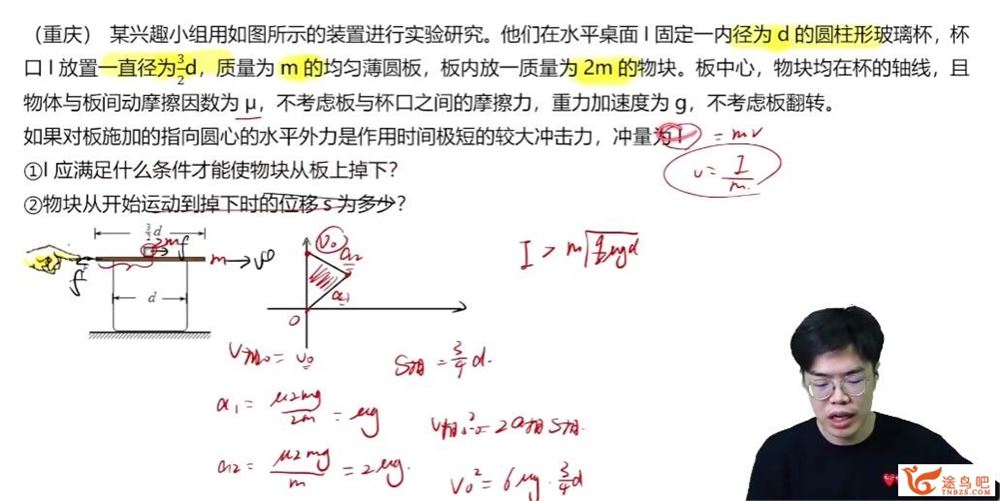 （重庆） 某兴趣小组用如图所示的装置进行实验研究。他们在水平桌面 l 固定一内径为 d 的圆柱形玻璃杯，杯
口 l 放置一直径为3/2d，质量为 m 的均匀薄圆板，板内放一质量为 2m 的物块。板中心，物块均在杯的轴线，且
物体与板间动摩擦因数为 μ，不考虑板与杯口之间的摩擦力，重力加速度为 g，不考虑板翻转。
如果对板施加的指向圆心的水平外力是作用时间极短的较大冲击力，冲量为 I = mv
v = I/m
①I 应满足什么条件才能使物块从板上掉下？
②物块从开始运动到掉下时的位移 s 为多少？
3/2 d
2m f
m → v0
f
d
v0
a2
a1
0
v相0 = v0
S相 = 3/4 d.
a1 = μ2mg/2m = μg
a2 = μ2mg/m = 2μg.
v0² = 6μg · 3/4 d
途鸟吧
TNBZS.COM